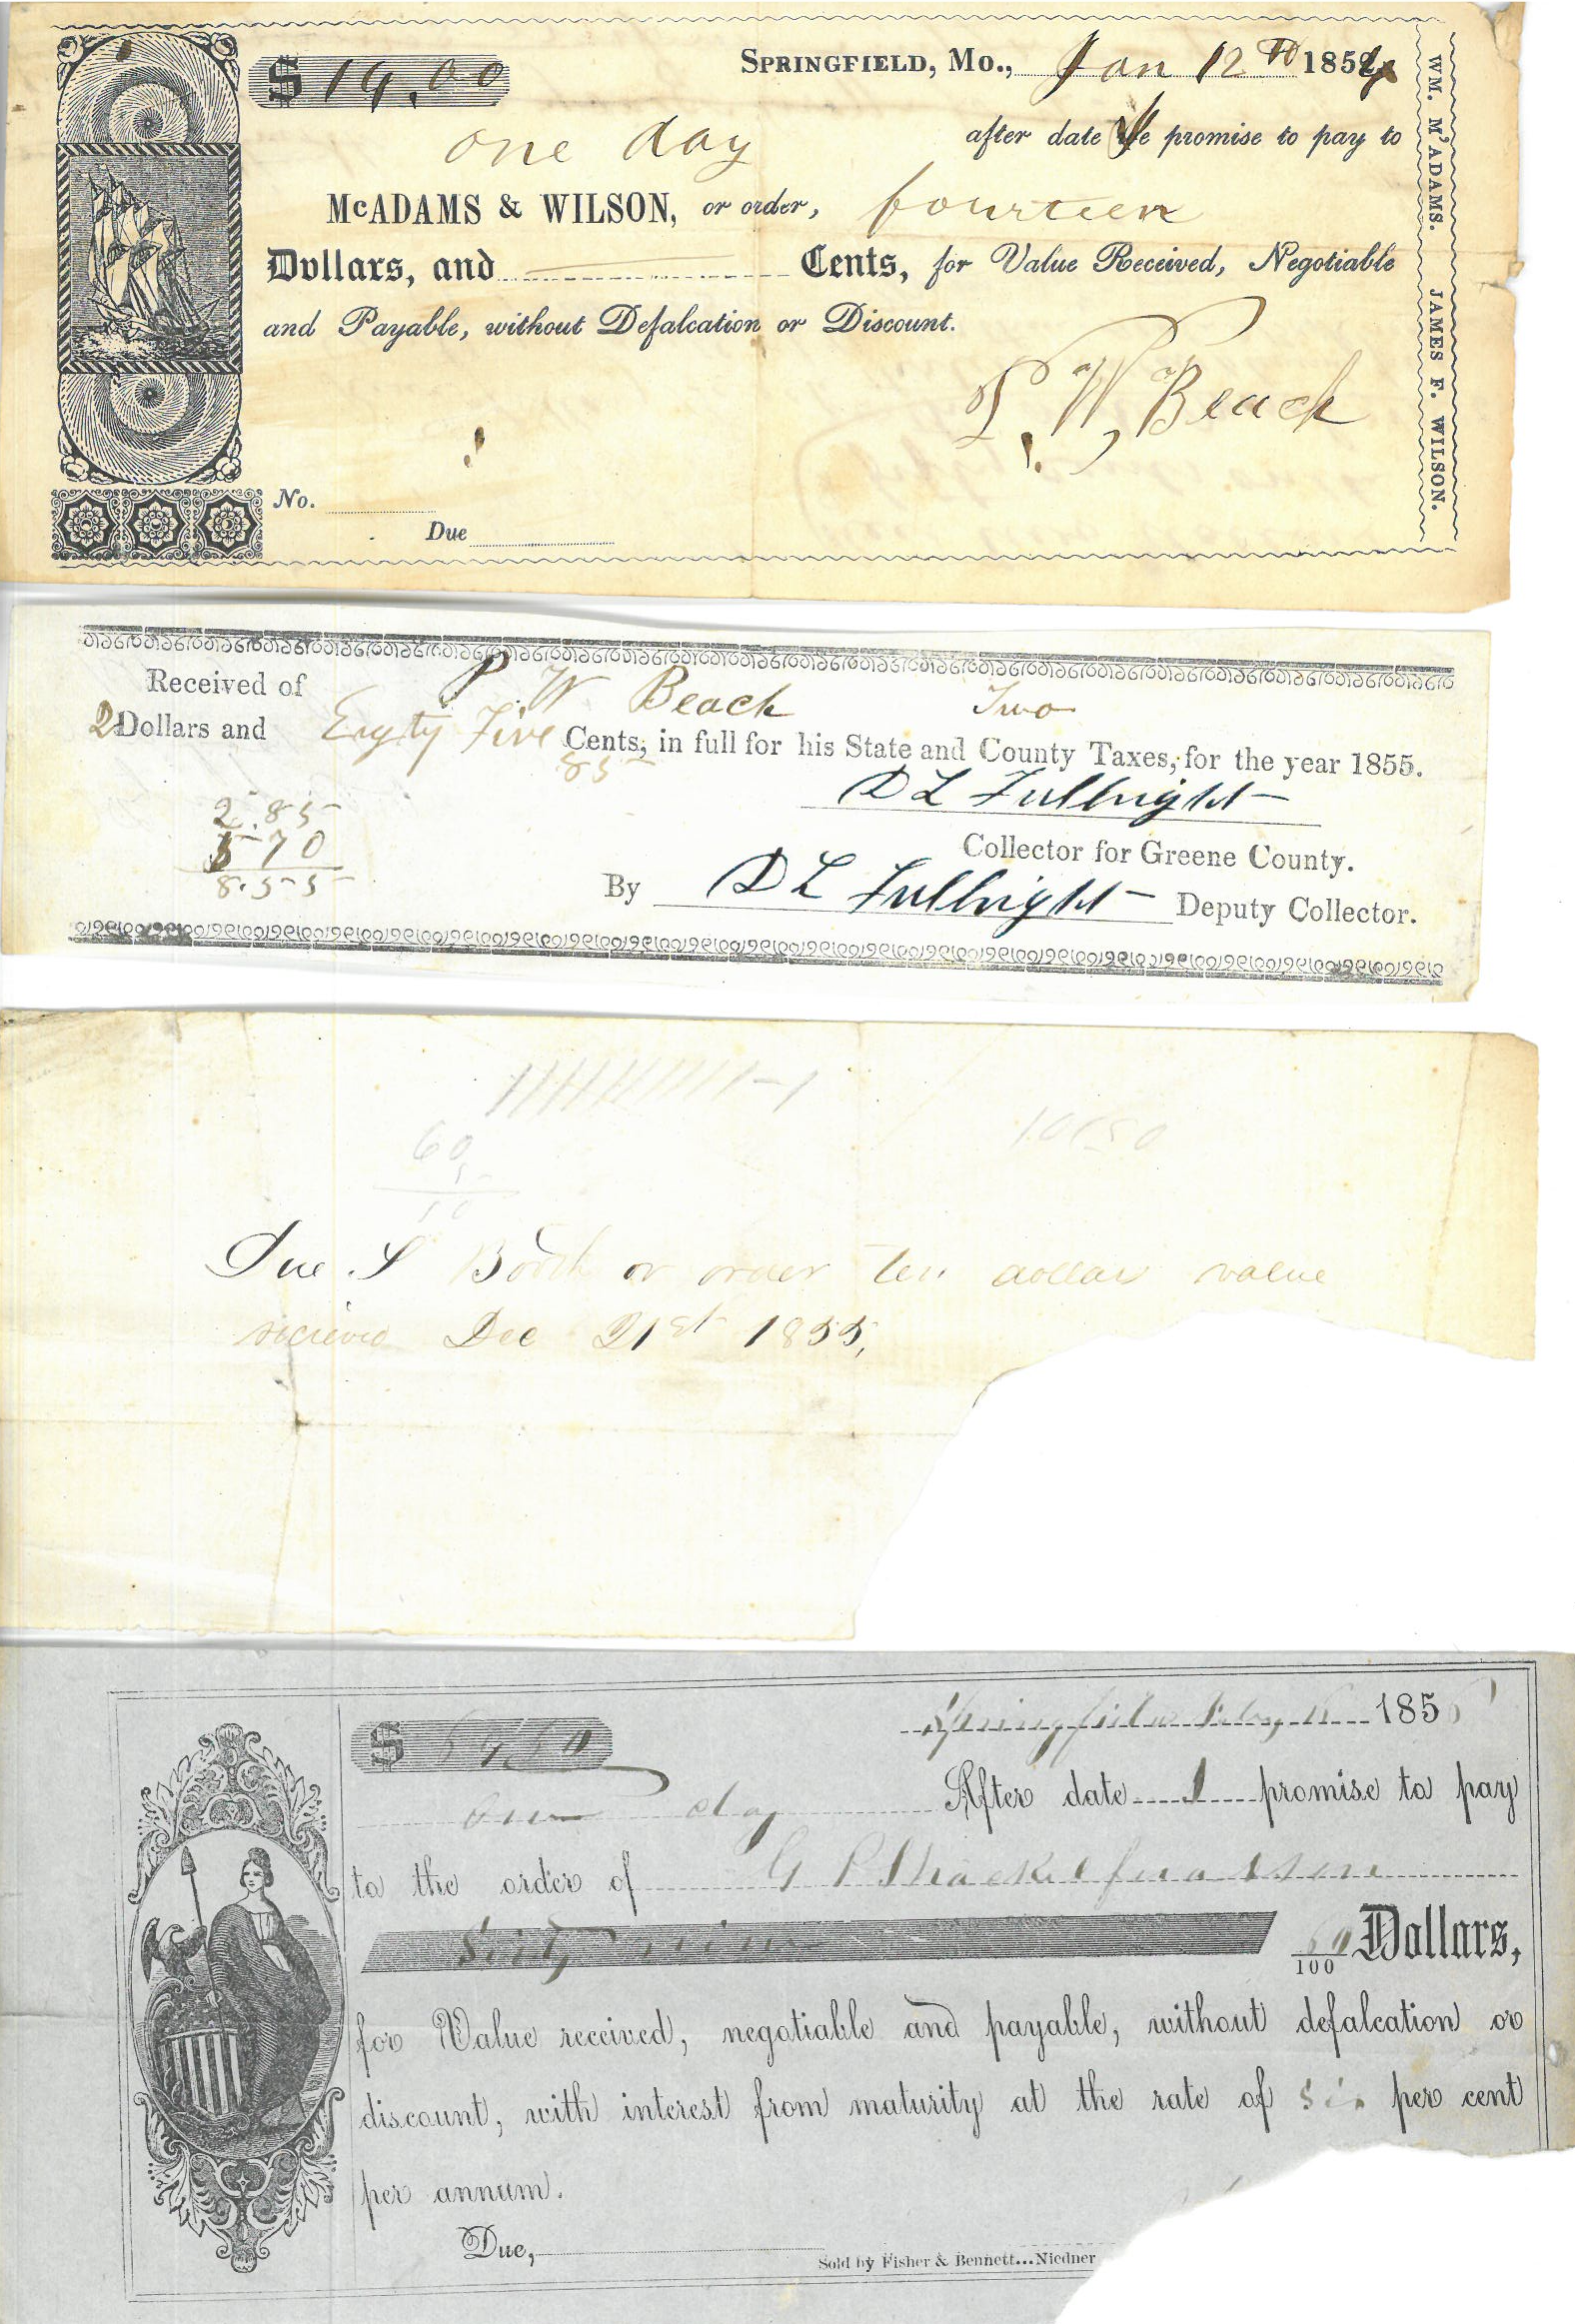 $ 14.00
SPRINGFIELD, Mo., Jan 12th 1854
one day after date We promise to pay to
McADAMS & WILSON, or order, fourteen
Dollars, and Cents, for Value Received, Negotiable
and Payable, without Defalcation or Discount.
P. W. Beach
No.
Due
WM. M'ADAMS. JAMES F. WILSON.
Received of P. W Beach Two
2 Dollars and Eigty Five Cents, in full for his State and County Taxes, for the year 1855.
85
D L Fulbright
Collector for Greene County.
By D L Fulbright Deputy Collector.
2.85
5 70
8.55
60
5
Due Booth or order ten dollar value
recieved Dec 21st 1855,
$
Springfield 185
one day After date I promise to pay
to the order of G P Shackelford
Sixty nine /100 Dollars,
for Value received, negotiable and payable, without defalcation or
discount, with interest from maturity at the rate of six per cent
per annum.
Due,
Sold by Fisher & Bennett...Niedner